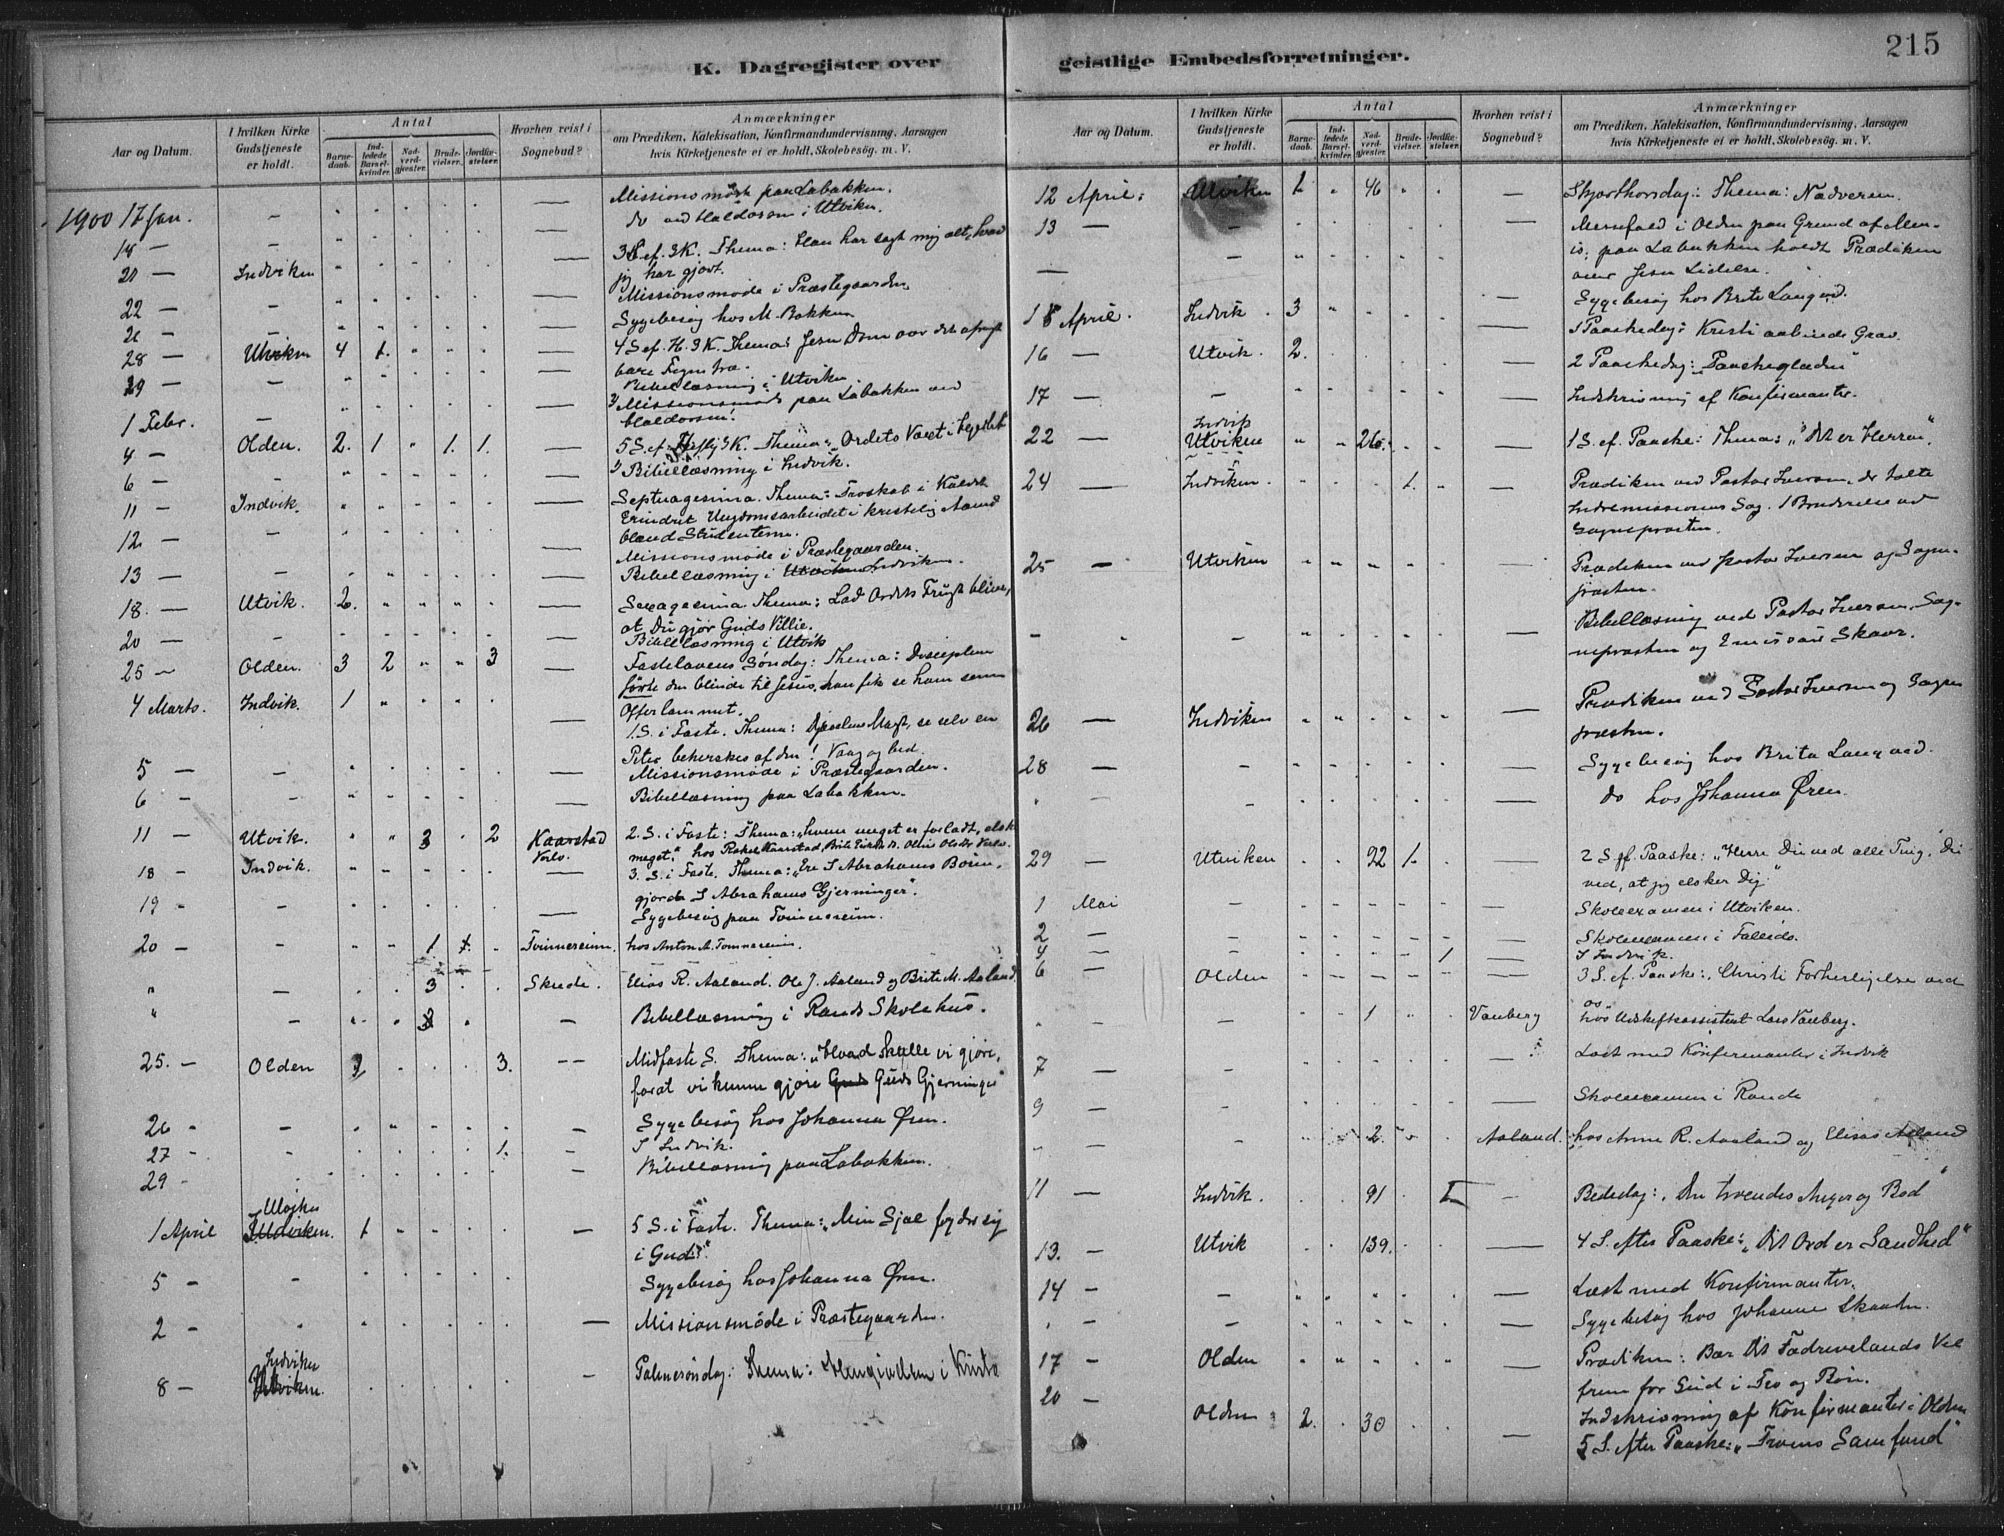 K. Dagregister over
Aar og Datum. I hvilken Kirke Gudstjeneste er holdt. Antal Barnedaab. Indledede Barselkvinder. Nadverdgjæster. Brudevielser. Jordfæstelser. Hvorhen reist i Sognebud? Anmærkninger om Prædiken, Katekisation, Konfirmandundervisning, Aarsagen hvis Kirketjeneste ei er holdt, Skolebesøg. m. V.
Missionsmøde paa Labakken.
1900 17 Jan. — — do ved Haldorsen i Utviken.
18 —
21 — Indviken — 3 S. ef. 3 K. Thema: Han har sagt mig alt, hvad
jeg har gjort.
22 — — — Missionsmøde i Præstegaarden
26 — — — Sygebesøg hos M. Bakken
28 — Utviken 4 1. — 4 S. ef. H. 3 K. Thema: Jesu Dom over det ufrugt
bare Figentræ.
29 — — — Bibellæsning i Utviken
1 Febr. — — Missionsmøde paa Labakken ved
Haldorsen.
4 — Olden. 2. 1 1. 1. — 5 S. ef. H. 3 K. Thema: Ordets Vært i
6 — — Bibellæsning i Indvik.
11 — Indvik. — Septuagesima. Thema: Troskab i Kaldet.
Erindret Ungdomsarbeidet i kristelig Aand
bland Studenterne.
12 — — — Missionsmøde i Præstegaarden.
13 — — Bibellæsning i Utviken Indviken.
18. — Utvik. 2. — Sexagesima. Thema: Lad Ordets Frugt blive,
at Du gjør Guds Villie.
20 — — Bibellæsning i Utvik
25 — Olden. 3 2 3 — Fastelavens Søndag: Thema: Disciplene
førte den blinde til Jesus, han fik se ham som
Offerlammet.
4 Marts. Indvik. 1 — 1. S. i Faste. Thema: Djævelens Magt, se selv en
Peter beherskes af den! Vaag og bed.
5 — — — Missionsmøde i Præstegaarden.
6 — — — Bibellæsning paa Labakken.
11 — Utvik. 3 2 Kaarstad 2. S. i Faste: Thema: „hvem meget er forladt, elsk
meget." hos Rakel Kaarstad,
18 — Indvik. — 3. S. i Faste. Thema: „Ere I Abrahams Børn,
gjorde I Abrahams Gjerninger".
19 — — Sygebesøg paa Tvinnereim.
20 — — 1 1. Tvinnereim. hos Anton A. Tvinnereim.
" — 3 Skrede. Elias R. Aaland. Ole J. Aaland og Brite M. Aaland.
" — — Bibellæsning i Rands Skolehus.
25. — Olden 3. — Midfaste S. Thema: „Hvad skulle vi gjøre,
forat vi kunne gjøre Guds Guds Gjerninger"
26 — — — Sygebesøg hos Johanna Øren.
27 — — 1. — I Indvik.
29 — — Bibellæsning paa Labakken.
Utviken
1 April Indviken. 1 — 5 S. i Faste. Thema: „Min Sjæl fryder sig
i Gud".
5 — — Sygebesøg hos Johanna Øren.
2 — — Missionsmøde i Præstegaarden.
Indviken
8 — Utviken. — Palmesøndag: Thema: Hengivelsen i Kristo
geistlige Embedsforretninger.
215
Aar og Datum. I hvilken Kirke Gudstjeneste er holdt. Antal Barnedaab. Indledede Barselkvinder. Nadverdgjæster. Brudevielser. Jordfæstelser. Hvorhen reist i Sognebud? Anmærkninger om Prædiken, Katekisation, Konfirmandundervisning, Aarsagen hvis Kirketjeneste ei er holdt, Skolebesøg. m. V.
12 April: Utviken 1 46 — Skjærthorsdag: Thema: Nadveren.
13 — — Messefald i Olden paa Grund af Men-
is; paa Labakken holdt Prædiken
over Jesu Lidelse.
— — Sygebesøg hos Brite Langved.
15 April. Indvik. 3 — 1 Paaskedag: Kristi aabnede Grav.
16 — Utvik. 2. — 2 Paaskedag: „Paaskeglæden"
17 — — — Indskrivning af Konfirmanter.
Indvik
22 — Utviken 26. — 1 S. ef. Paaske: Thema: „Det er Herren".
24 — Indviken. 1. — Prædiken ved Pastor Iversen, der talte
Indremissionens Sag. 1 Brudevielse ved
Sognepresten.
25 — Utviken — Prædiken ved Pastor Iversen og Sogne-
præsten.
— — Bibellæsning ved Pastor Iversen, Sog-
nepræsten og Emissær Skaar.
26 — Indviken — Prædiken ved Pastor Iversen og Sogne
præsten.
28 — — Sygebesøg hos Brita Langved.
" — — do hos Johanna Øren.
29 — Utviken 22 1. — 2 S. ef. Paaske: „Herre Du ved alle Ting, Du
ved, at jeg elsker Dig"
1 Mai — — Skoleexamen i Utviken.
2 — — — Skoleexamen i
4 — — 1 — I Indvik.
6 — Olden — 3 S. ef. Paaske: „Christi Forherligelse ved
os.
" — 1 Vanberg hos Udskiftsassistent Lars Vanberg.
7 — — — Læst med Konfirmanter i Indvik
9 — — Skoleexamen i Rande
" — 2. Aaland. hos Anne R. Aaland og Elias Aaland
11 — Indvik. 91 — Bededag: „Den troendes Anger og Bod"
13. — Utvik 139. — 4 S. efter Paaske: „Dit Ord er Sandhed"
14 — — — Læst med Konfirmanter.
" — — Sygebesøg hos Johanne Skaaden.
17 — Olden — Prædiken: Bær Dit Fædrenelands Vel
frem for Gud i Tro og Bøn.
20 — Indskrivning af Konfirmanter i Olden
Olden 2. 30 — 5 S. efter Paaske: „Troens Samfund"